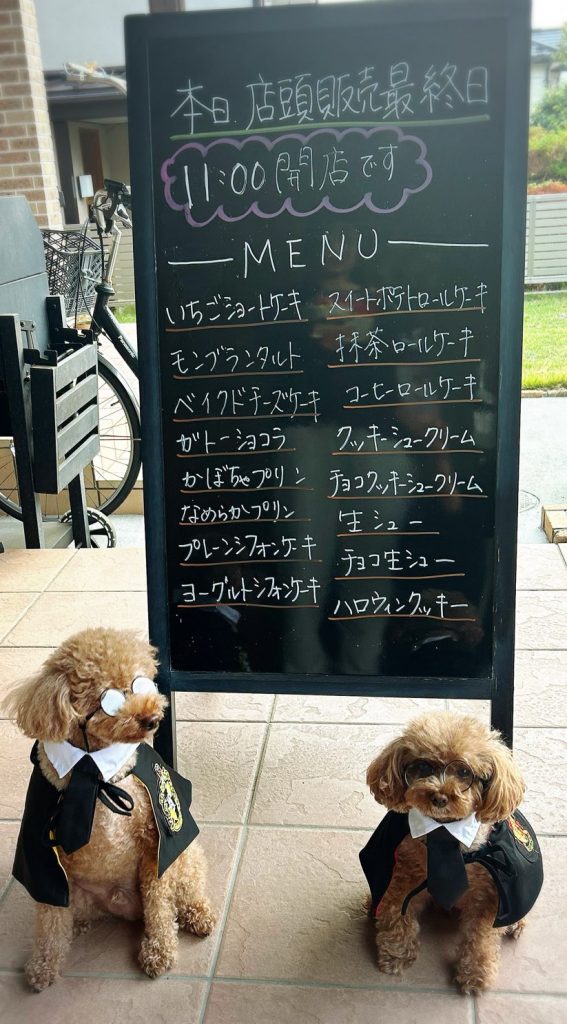 本日 店頭販売最終日
11:00 開店です
MENU
いちごショートケーキ
モンブランタルト
ベイクドチーズケーキ
ガトーショコラ
かぼちゃプリン
なめらかプリン
プレーンシフォンケーキ
ヨーグルトシフォンケーキ
スイートポテトロールケーキ
抹茶ロールケーキ
コーヒーロールケーキ
クッキーシュークリーム
チョコクッキーシュークリーム
生シュー
チョコ生シュー
ハロウィンクッキー